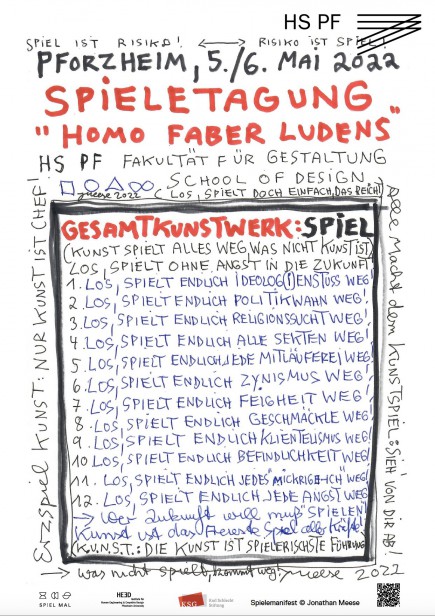 HS PF
SPiEL iST RiSiKO! ↔ RiSiKO iST SPiEL!
PFORZHEIM, 5./6. MAI 2022
SPiELETAGUNG
"HOMO FABER LUDENS"
HS PF FAKULTÄT FÜR GESTALTUNG
SCHOOL OF DESIGN
Meese 2022 (LOS, SPiELT DOCH EiNFACH, DAS REiCHT)
GESAMTKUNSTWERK: SPiEL
(KUNST SPiELT ALLES WEG, WAS NiCHT KUNST iST)
LOS, SPiELT OHNE ANGST iN DiE ZUKUNFT
1. LOS, SPiELT ENDLiCH WEG!
2. LOS, SPiELT ENDLiCH POLiTiKWAHN WEG!
3. LOS, SPiELT ENDLiCH RELiGiONSSUCHT WEG!
4. LOS, SPiELT ENDLiCH ALLE SEKTEN WEG!
5. LOS, SPiELT ENDLiCH JEDE MiTLÄUFEREi WEG!
6. LOS, SPiELT ENDLiCH ZYNiSMUS WEG!
7. LOS, SPiELT ENDLiCH FEiGHEiT WEG!
8. LOS, SPiELT ENDLiCH GESCHMÄCKLE WEG!
9. LOS, SPiELT ENDLiCH KLiENTELiSMUS WEG!
10. LOS, SPiELT ENDLiCH BEFiNDLiCHKEiT WEG!
11. LOS, SPiELT ENDLiCH JEDES "MiCKRiGE-iCH" WEG!
12. LOS, SPiELT ENDLiCH JEDE ANGST WEG!
→ Wer Zukunft will muß SPiELEN!
Kunst ist das Spiel aller Kräfte!
(K.U.N.S.T.: DiE KUNST iST SPiELERiSCHSTE FÜHRUNG)
→ Was nicht spielt, kommt weg! Meese 2022
Erzspiel KUNST: NUR KUNST iST CHEF!
Alle Macht dem KUNSTSPiEL: SiEH VON DiR AB!
SPIEL MAL
HE3D
KSG
Karl Schlecht
Stiftung
Spielemanifest © Jonathan Meese